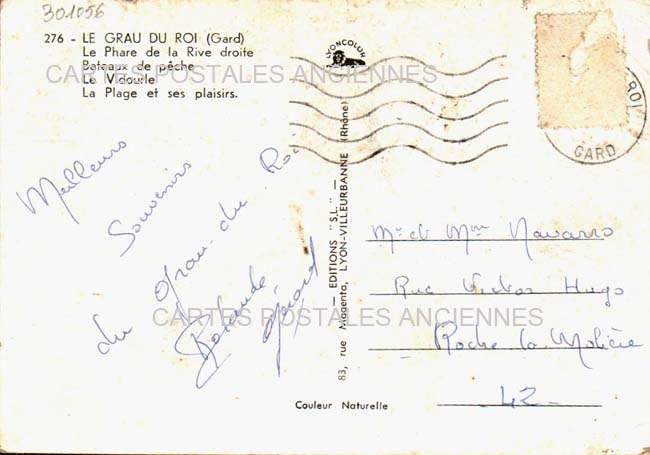 301056
276 - LE GRAU DU ROI (Gard)
Le Phare de la Rive droite
Bateaux de pêche
Le Vidourle
La Plage et ses plaisirs.
CARTES POSTALES ANCIENNES
LYONCOLOR
ROI
GARD
Meilleurs
Souvenirs
du Grau du Roi
Rolande
Gérard
— EDITIONS "S.L." —
83, rue Magenta, LYON-VILLEURBANNE (Rhône)
Mr et Mme Navarro
Rue Victor Hugo
Roche la Molière
- 42 -
CARTES POSTALES ANCIENNES
Couleur Naturelle